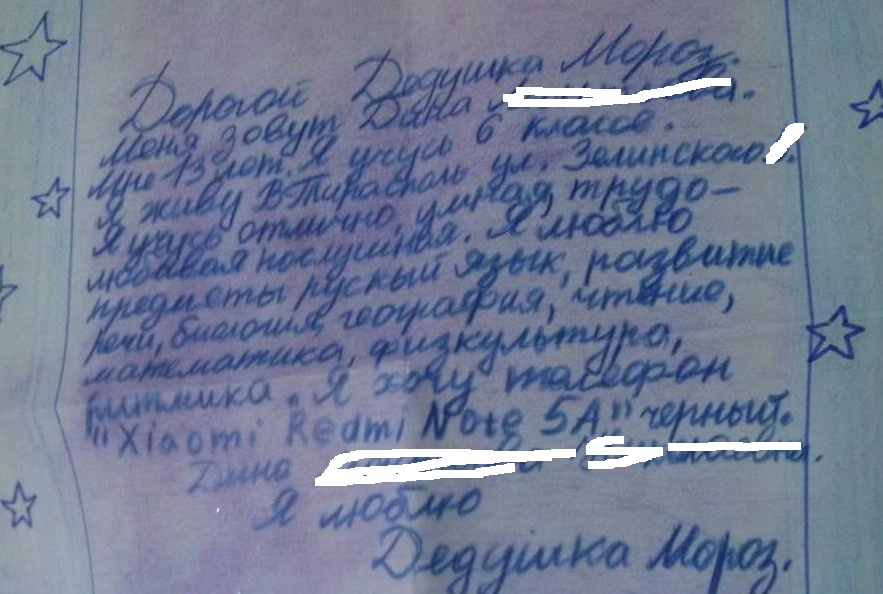 Дорогой Дедушка Мороз.
Меня зовут Дана
Мне 13 лет. Я учусь 6 классе.
Я живу В Тирасполь ул. Зелинского
Я учусь отлично, умная, трудо-
любивая послушная. Я люблю
предметы руский язык, развитие
речи, биология, география, чтение,
математика, физкультура,
ритмика. Я хочу телефон
"Xiaomi Redmi Note 5A" черный.
Дана
Я люблю
Дедушка Мороз.